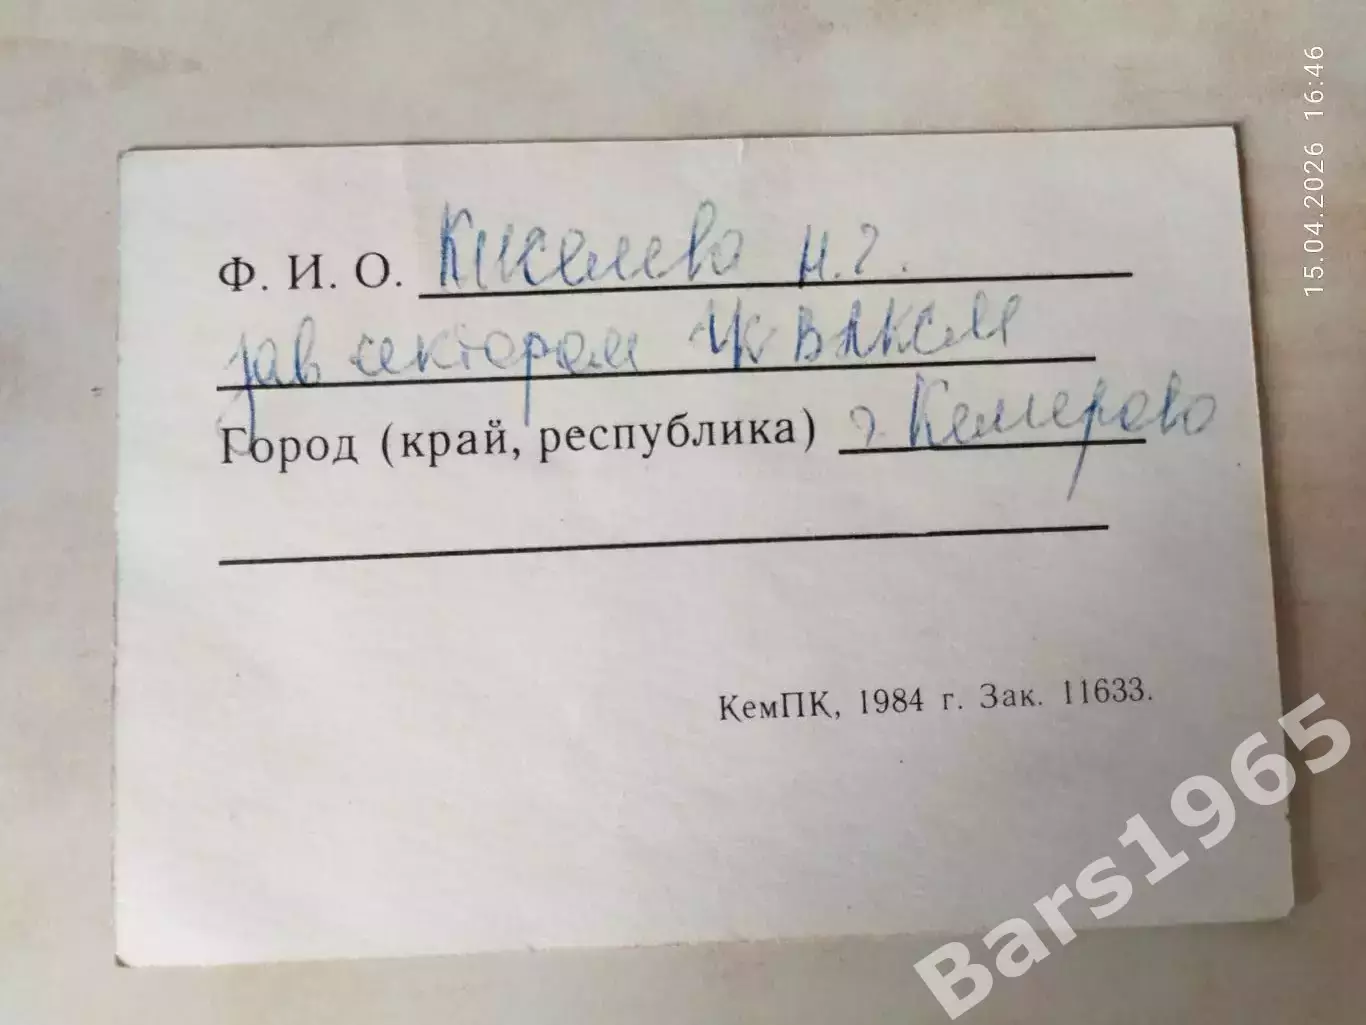 Ф. И. О. Киселева Н. Г.
зав сектором ЦК ВЛКСМ
Город (край, республика) г. Кемерово
КемПК, 1984 г. Зак. 11633.
15.04.2026 16:46
Bars1965